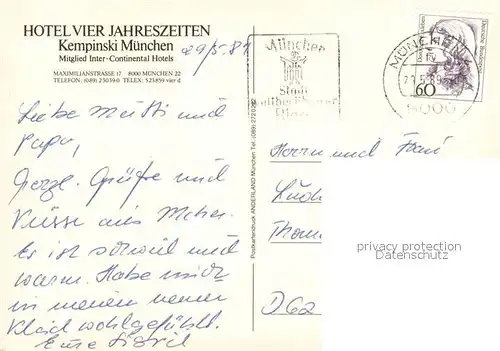 HOTEL VIER JAHRESZEITEN
Kempinski München
Mitglied Inter·Continental Hotels
MAXIMILIANSTRASSE 17 8000 MÜNCHEN 22
TELEFON: (089) 23039-0 TELEX: 523859 vier d
29/5.89
Liebe Mutti und
Papu,
herzl. Grüße und
Küsse aus Mchen.
Es ist schwül und
warm. Habe mich
in meinem neuen
Kleid wohlgefühlt.
Eure Sigrid
Postkartendruck ANDERLAND München Tel. (089) 272
München
Stadt
MÜNCHEN
60
8000
Deutsche Bundespost
Herrn und Frau
D 62
privacy protection
Datenschutz